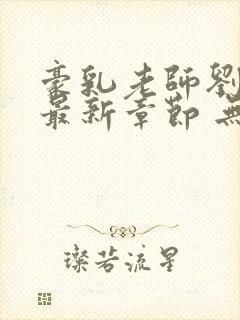 豪乳老師劉
最新章節 無
璨若流星